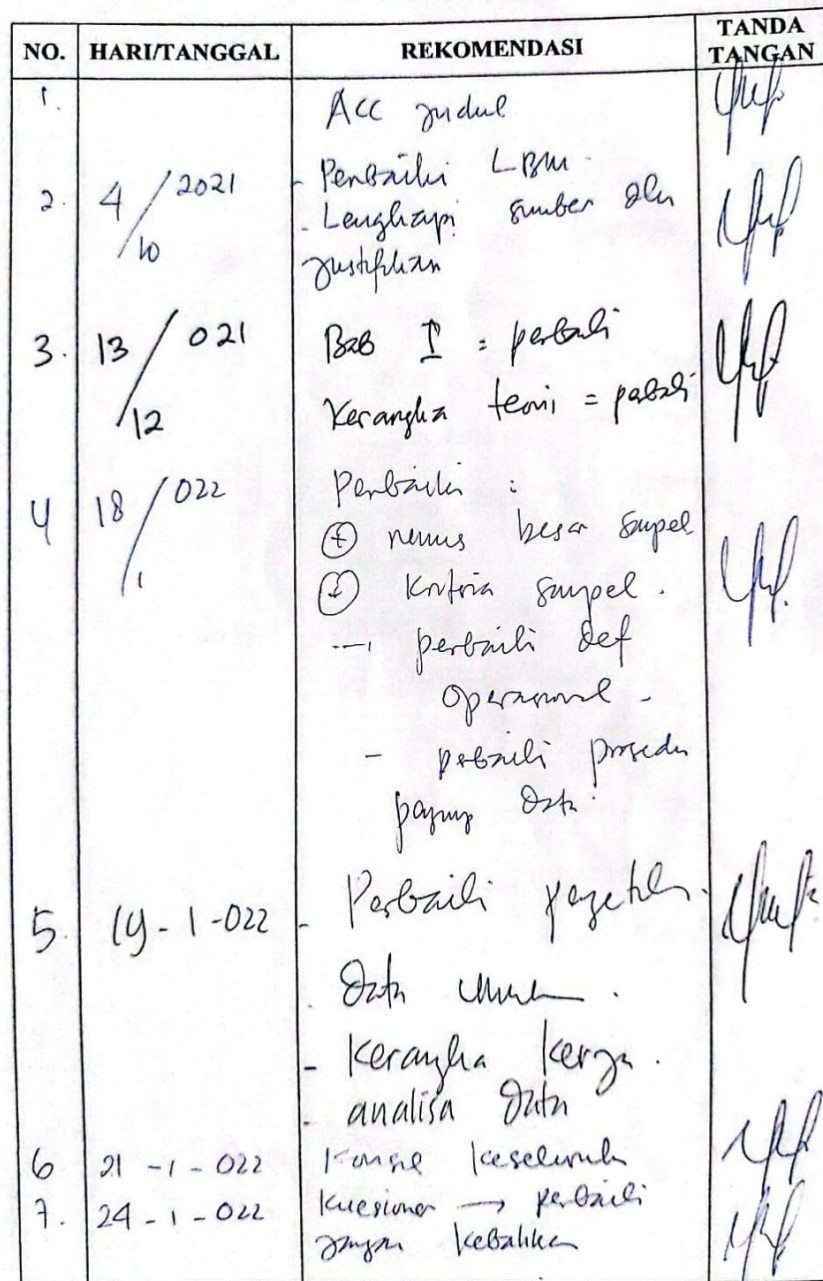 NO. HARI/TANGGAL REKOMENDASI TANDA TANGAN
1. Acc judul
2. 4/10 2021 - Perbaiki LBM.
- Lengkapi sumber dan
justifikan
3. 13/12 021 Bab I = perbaiki
Kerangka teori = perbaiki
4 18/1 022 Perbaiki :
+ rumus besar sampel
+ kriteria sampel.
→ perbaiki def
operasional -
- perbaiki prosedur
data.
5. 19-1-022 - Perbaiki
Data umum.
- Kerangka kerja.
- analisa Data
6 21-1-022 Konsul keseluruhan
7. 24-1-022 Kuesioner → perbaiki
jangan